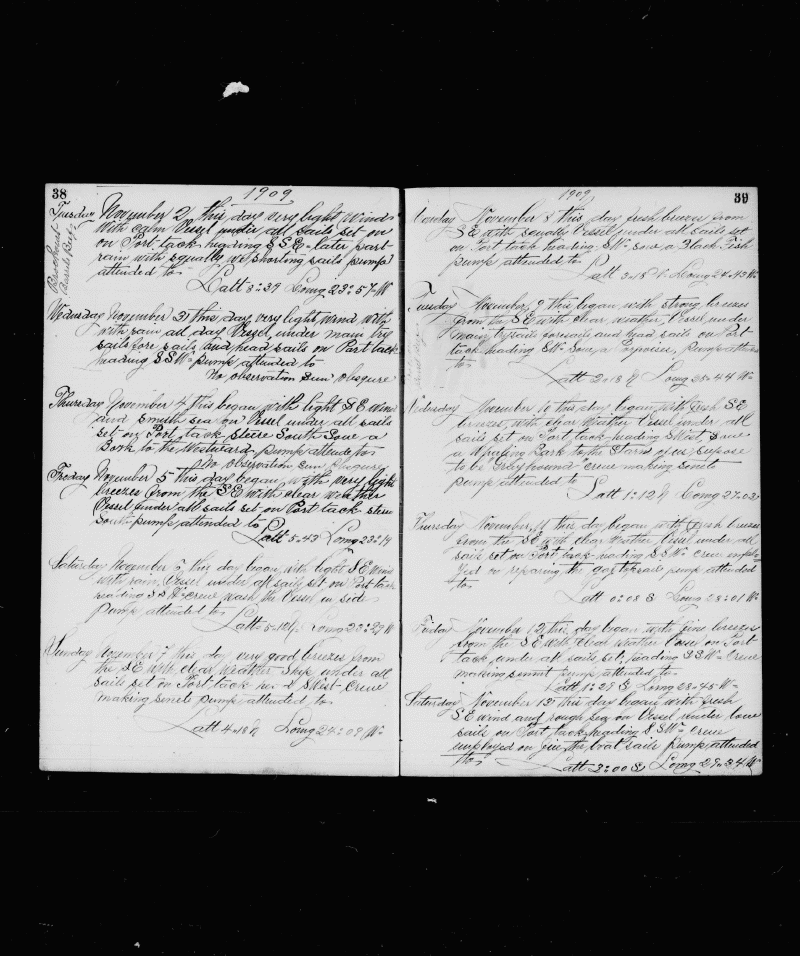 38
1909
Tuesday November 2 this day very light Winds
With calm Vessel under all sails set on
on Port tack heading S S E - later part
rain with squally we shorting sails pump
attended to
Latt 8:39 Long 23:57 W
Wednesday November 3 this day very light wind with
with rain all day Vessel under main try
sails fore sails and head sails on Port tack
heading S S W pump attended to
No observation Sun Obsqure
Thursday November 4 this began with light S E wind
and smuth sea on Vessel under all sails
set on Port tack steere South Sow a
Bark to the Westward pump attended to
No observation Sun Obsqure
Friday November 5 this day began with very light
breezes from the S E with clear weather
Vessel under all sails set on Port tack steere
South pump attended to
Latt 5:43 Long 23:19
Saturday November 6 this day began with light S E Wind
with rain Vessel under all sails set on Port tack
heading S S W crew wash the Vessel in side
Pump attended to
Latt 5:12 Long 23:29 W
Sunday November 7 this day very good breezes from
the S E With clear Weather Ship under all
sails set on Port tack S West Crew
making sinets pump attended to
Latt 4:18 N Long 24:09 W
39
1909
Monday November 8 this day fresh breezes from
S E with squally Vessel under all sails set
on Port tack heading S W sow a Black Fish
pump attended to
Latt 3:18 N Long 24:43 W
Tuesday November 9 this began with strong breezes
from the S E with clear weather Vessel under
main trysails foresails and head sails on Port
tack heading S W Sow a Porpoises, Pump attended
to
Latt 2:18 N Long 25:44 W
Wednesday November 10 this day began with fresh S E
breezes with clear Weather Vessel under all
sails set on Port tack heading S West sow
a Whaling Bark to the Starn of us supose
to be Grayhound crew making sinets
pump attended to
Latt 1:12 N Long 27:02
Thursday November 11 this day began with fresh breezes
from the S E with clear Weather Vessel under all
sails set on Port tack heading S S W Crew emplo
yed on reparing the gaf topsail pump attended
to
Latt 0:08 S Long 28:01 W
Friday November 12 this day began with fine breezes
from the S E with clear weather Vessel on Port
tack under all sails set, heading S S W Crew
making sennit pump attended to
Latt 1:29 S Long 28:45 W
Saturday November 13 this day began with fresh
S E wind and rough sea on Vessel under low
sails on Port tack heading S S W Crew
employed on the boat sails pump attended
to
Latt 3:00 S Long 29:34 W